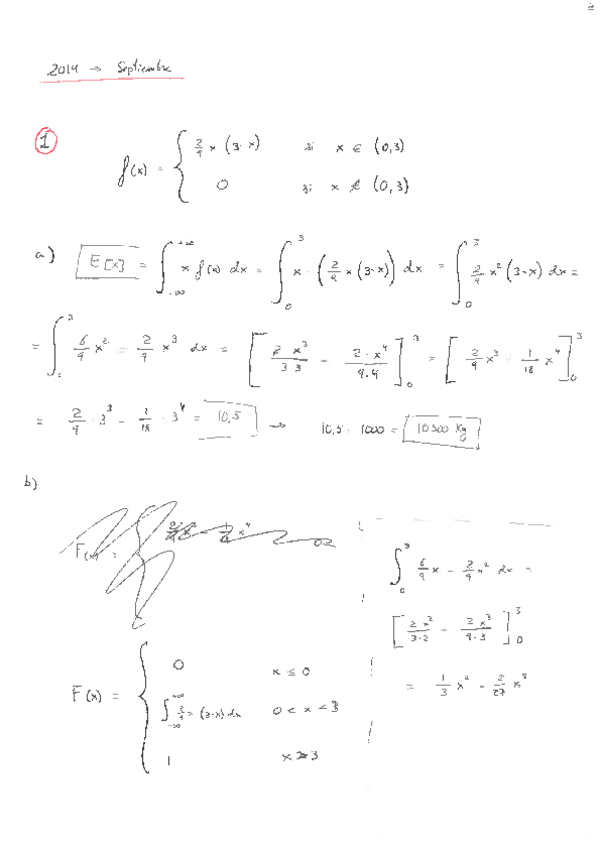 2014 → Septiembre
1
f(x) = { 2/9 x (3-x) si x ∈ (0,3)
0 si x ∉ (0,3)
a) E[x] = ∫_{-∞}^{+∞} x f(x) dx = ∫_0^3 x · (2/9 x (3-x)) dx = ∫_0^3 2/9 x² (3-x) dx =
= ∫_0^3 6/9 x² - 2/9 x³ dx = [ 2 · x³ / 3·3 - 2 · x⁴ / 9·4 ]_0^3 = [ 2/9 x³ - 1/18 x⁴ ]_0^3
= 2/9 · 3³ - 1/18 · 3⁴ = 10,5 → 10,5 · 1000 = 10500 Kg
b)
F(x) =
∫_0^3 6/9 x - 2/9 x² dx =
[ 2 x² / 3·2 - 2 x³ / 9·3 ]_0^3
= 1/3 x² - 2/27 x³
F(x) = { 0 x ≤ 0
∫_{-∞}^{+∞} 2/9 x (3-x) dx 0 < x < 3
1 x ≥ 3